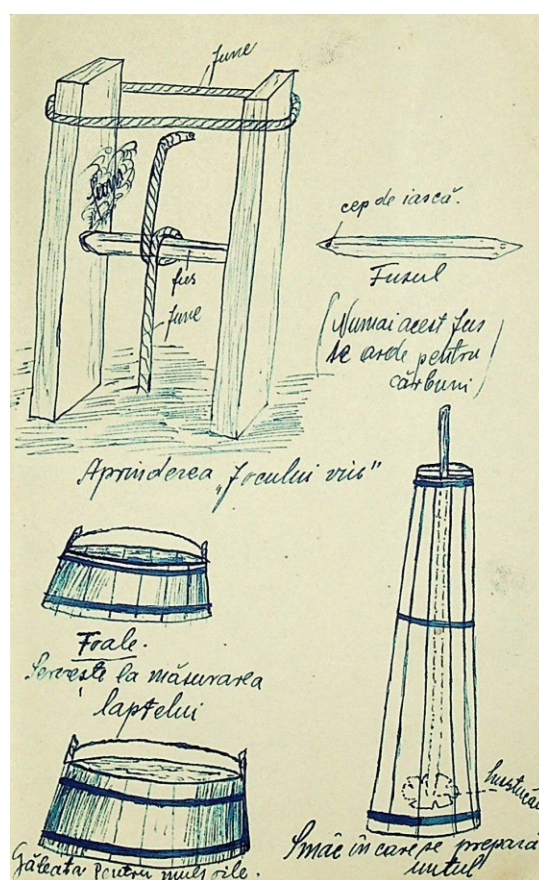 funie
cep de iască.
Fusul
fus
funie
(Numai acest fus
se arde pentru
cărbuni)
Aprinderea „focului viu"
Foale.
Servește la măsurarea
laptelui
Găleata pentru muls oile.
Smăc în care se prepară
untul